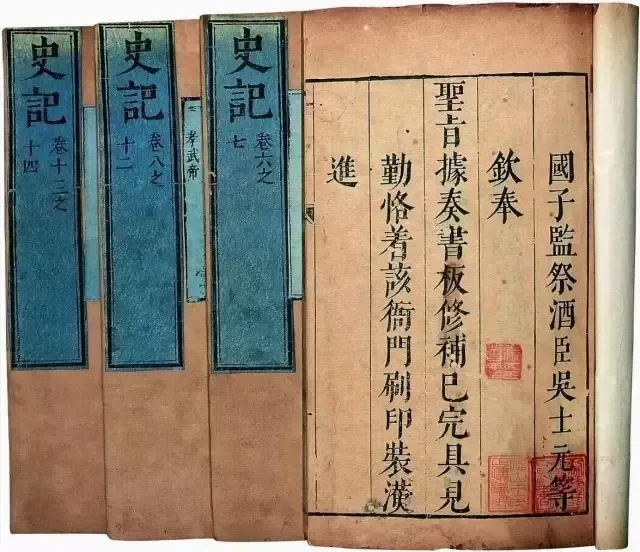 國子監祭酒臣吳士元等
欽奉
聖旨據奏書板修補已完具見
勤恪着該衙門刷印裝潢
進
史記
卷六之
七
孝武帝
史記
卷八之
十二
史記
卷十三之
十四